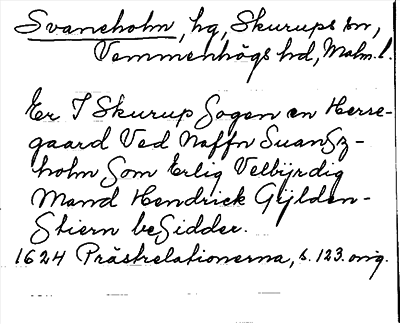 Svaneholm, hg, Skurups sn,
Vemmenhögs hd, Malm. l.
Er I Skurup Sogen en Herre-
gaard Ved Naffn Suansz-
holm Som Erlig Velbijrdig
Mand Hendrick Gijlden-
Stiern beSidder.
1624 Prästrelationerna, s. 123. orig.